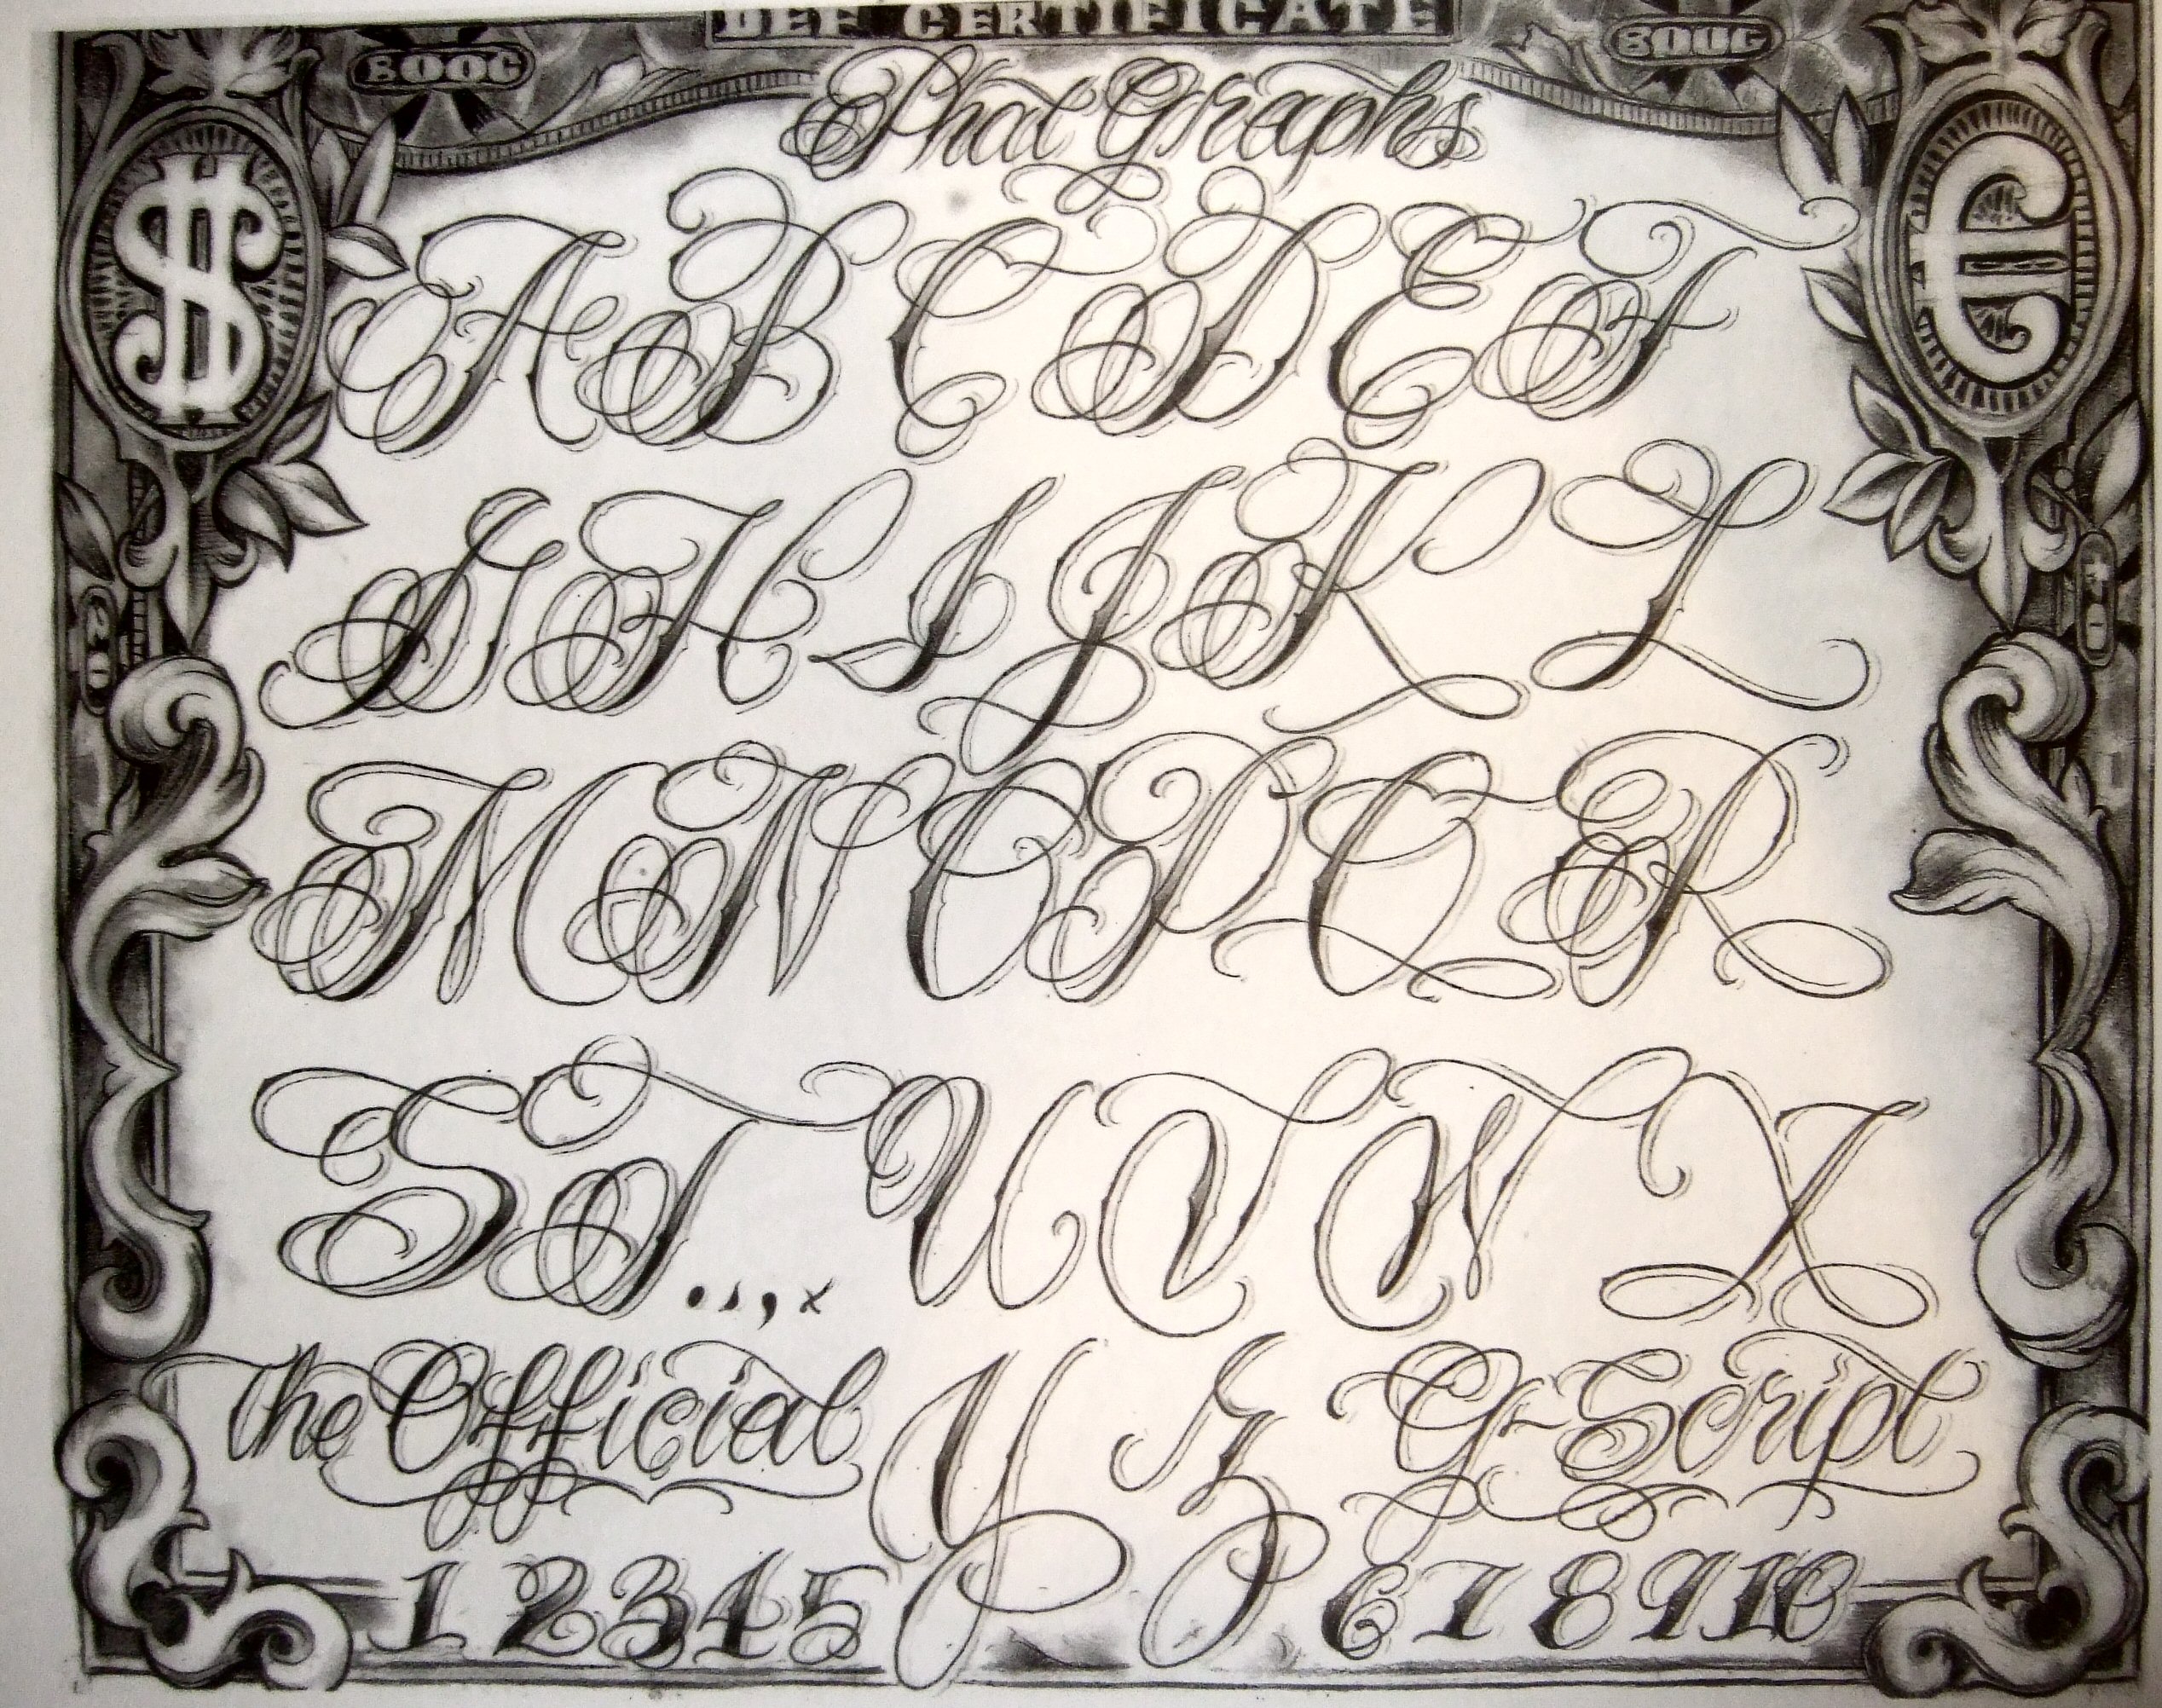 DEF CERTIFICATE
BOOG BOOG
Phat Graphs
A B C D E F
G H I J K L
M N O P Q R
S T . , , x U V W X
the Official Y Z G-Script
1 2 3 4 5 6 7 8 9 10